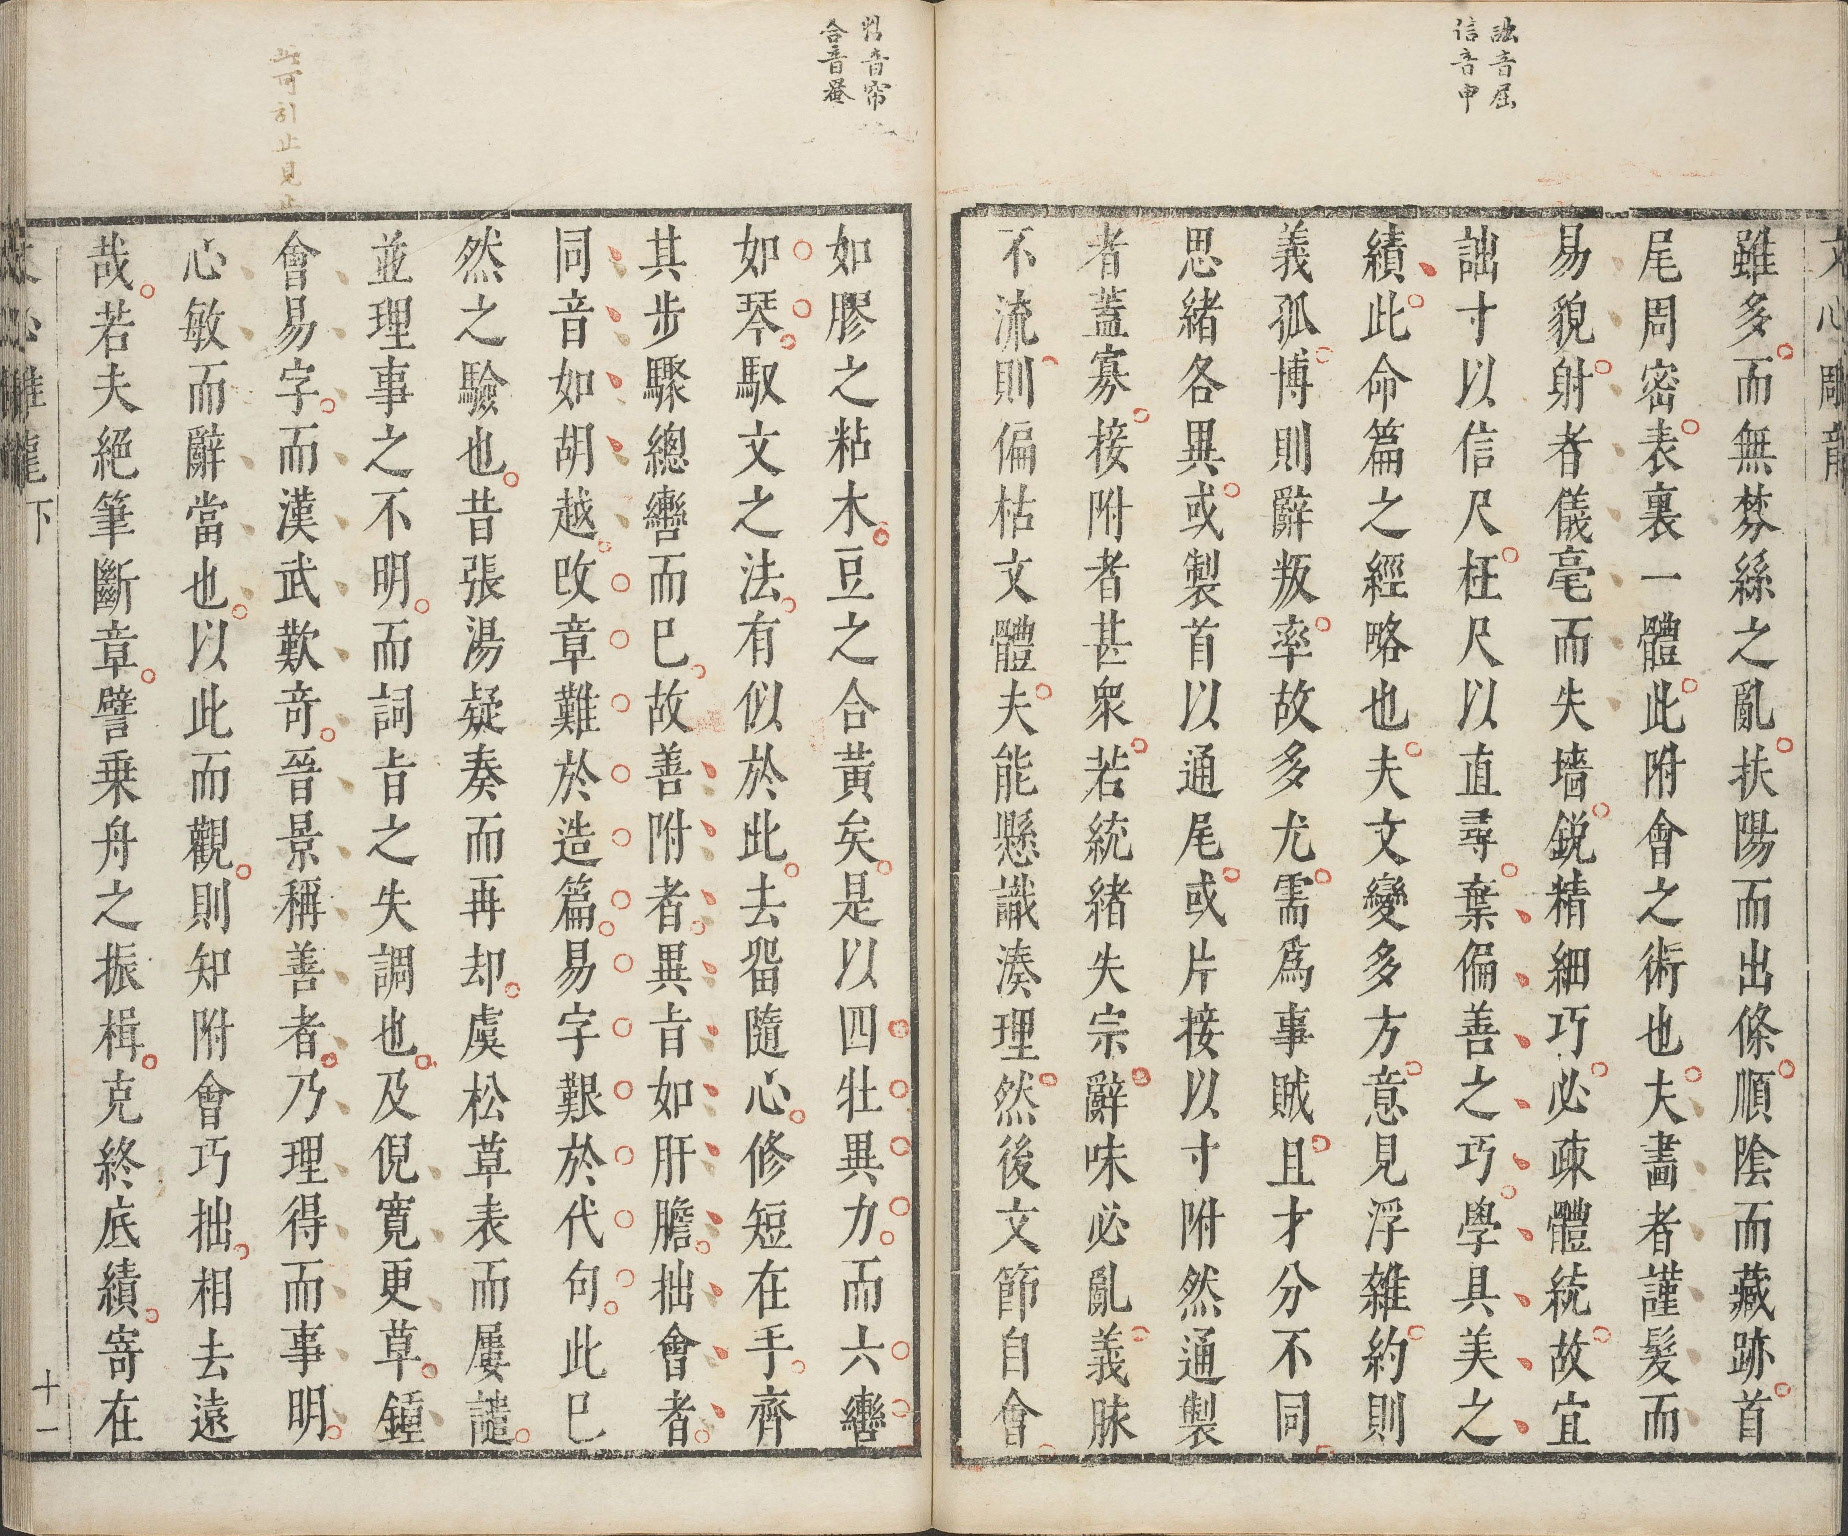 文心雕龍
詘音屈
信音申
雖多而無棼絲之亂扶陽而出條順陰而藏跡首
尾周密表裏一體此附會之術也夫畫者謹髮而
易貌射者儀毫而失墻銳精細巧必疎體統故宜
詘寸以信尺枉尺以直尋棄偏善之巧學具美之
績此命篇之經略也夫文變多方意見浮雜約則
義孤博則辭叛率故多尤需爲事賊且才分不同
思緒各異或製首以通尾或片接以寸附然通製
者蓋寡接附者甚衆若統緒失宗辭味必亂義脉
不流則偏枯文體夫能懸識湊理然後文節自會
音帘
合音
如膠之粘木豆之合黃矣是以四牡異力而六轡
如琴馭文之法有似於此去畱隨心修短在手齊
其步驟總轡而已故善附者異㫖如肝膽拙會者
同音如胡越改章難於造篇易字艱於代句此已
然之驗也昔張湯疑奏而再却虞松草表而屢譴
並理事之不明而詞㫖之失調也及倪寬更草鍾
此可引止見
會易字而漢武歎奇晉景稱善者乃理得而事明
心敏而辭當也以此而觀則知附會巧拙相去遠
哉若夫絕筆斷章譬乗舟之振楫克終底績寄在
文心雕龍下
十一